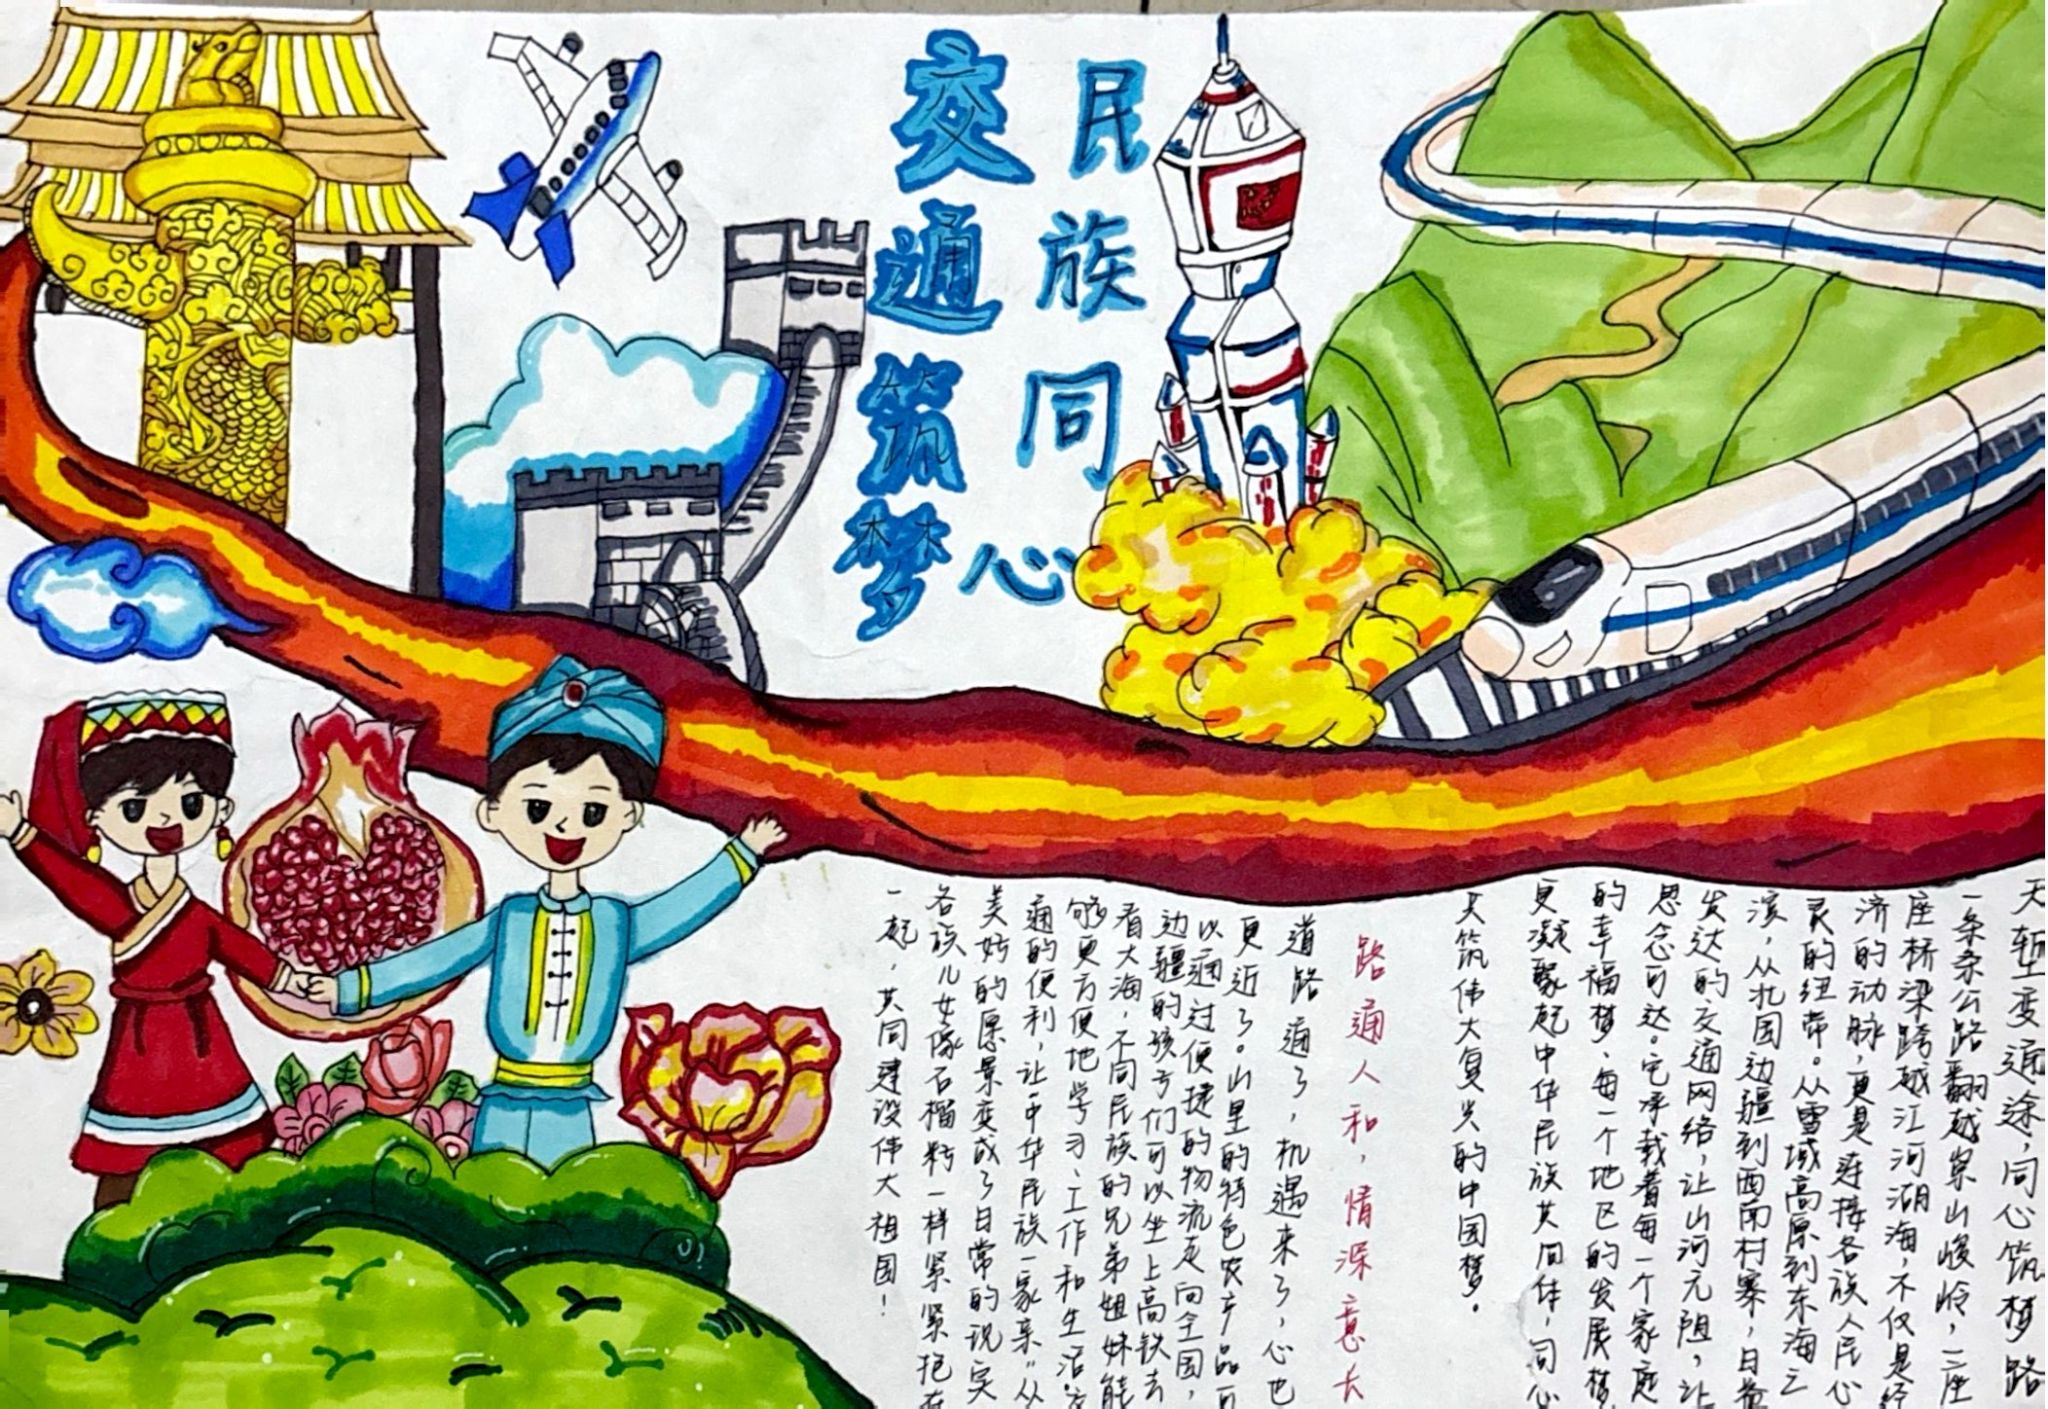 民族同心
交通筑梦
天堑变通途，同心筑梦路
一条条公路翻越崇山峻岭，一座
座桥梁跨越江河湖海，不仅是经
济的动脉，更是连接各族人民心
灵的纽带。从雪域高原到东海之
滨，从北国边疆到西南村寨，日益
发达的交通网络，让山河无阻，让
思念可达。它承载着每一个家庭
的幸福梦、每一个地区的发展梦
更凝聚起中华民族共同体，同心
共筑伟大复兴的中国梦。
路通人和，情深意长
道路通了，机遇来了，心也
更近了。山里的特色农产品可
以通过便捷的物流走向全国，
边疆的孩子们可以坐上高铁去
看大海，不同民族的兄弟姐妹能
够更方便地学习、工作和生活。交
通的便利，让“中华民族一家亲”从
美好的愿景变成了日常的现实
各族儿女像石榴籽一样紧紧抱在
一起，共同建设伟大祖国！